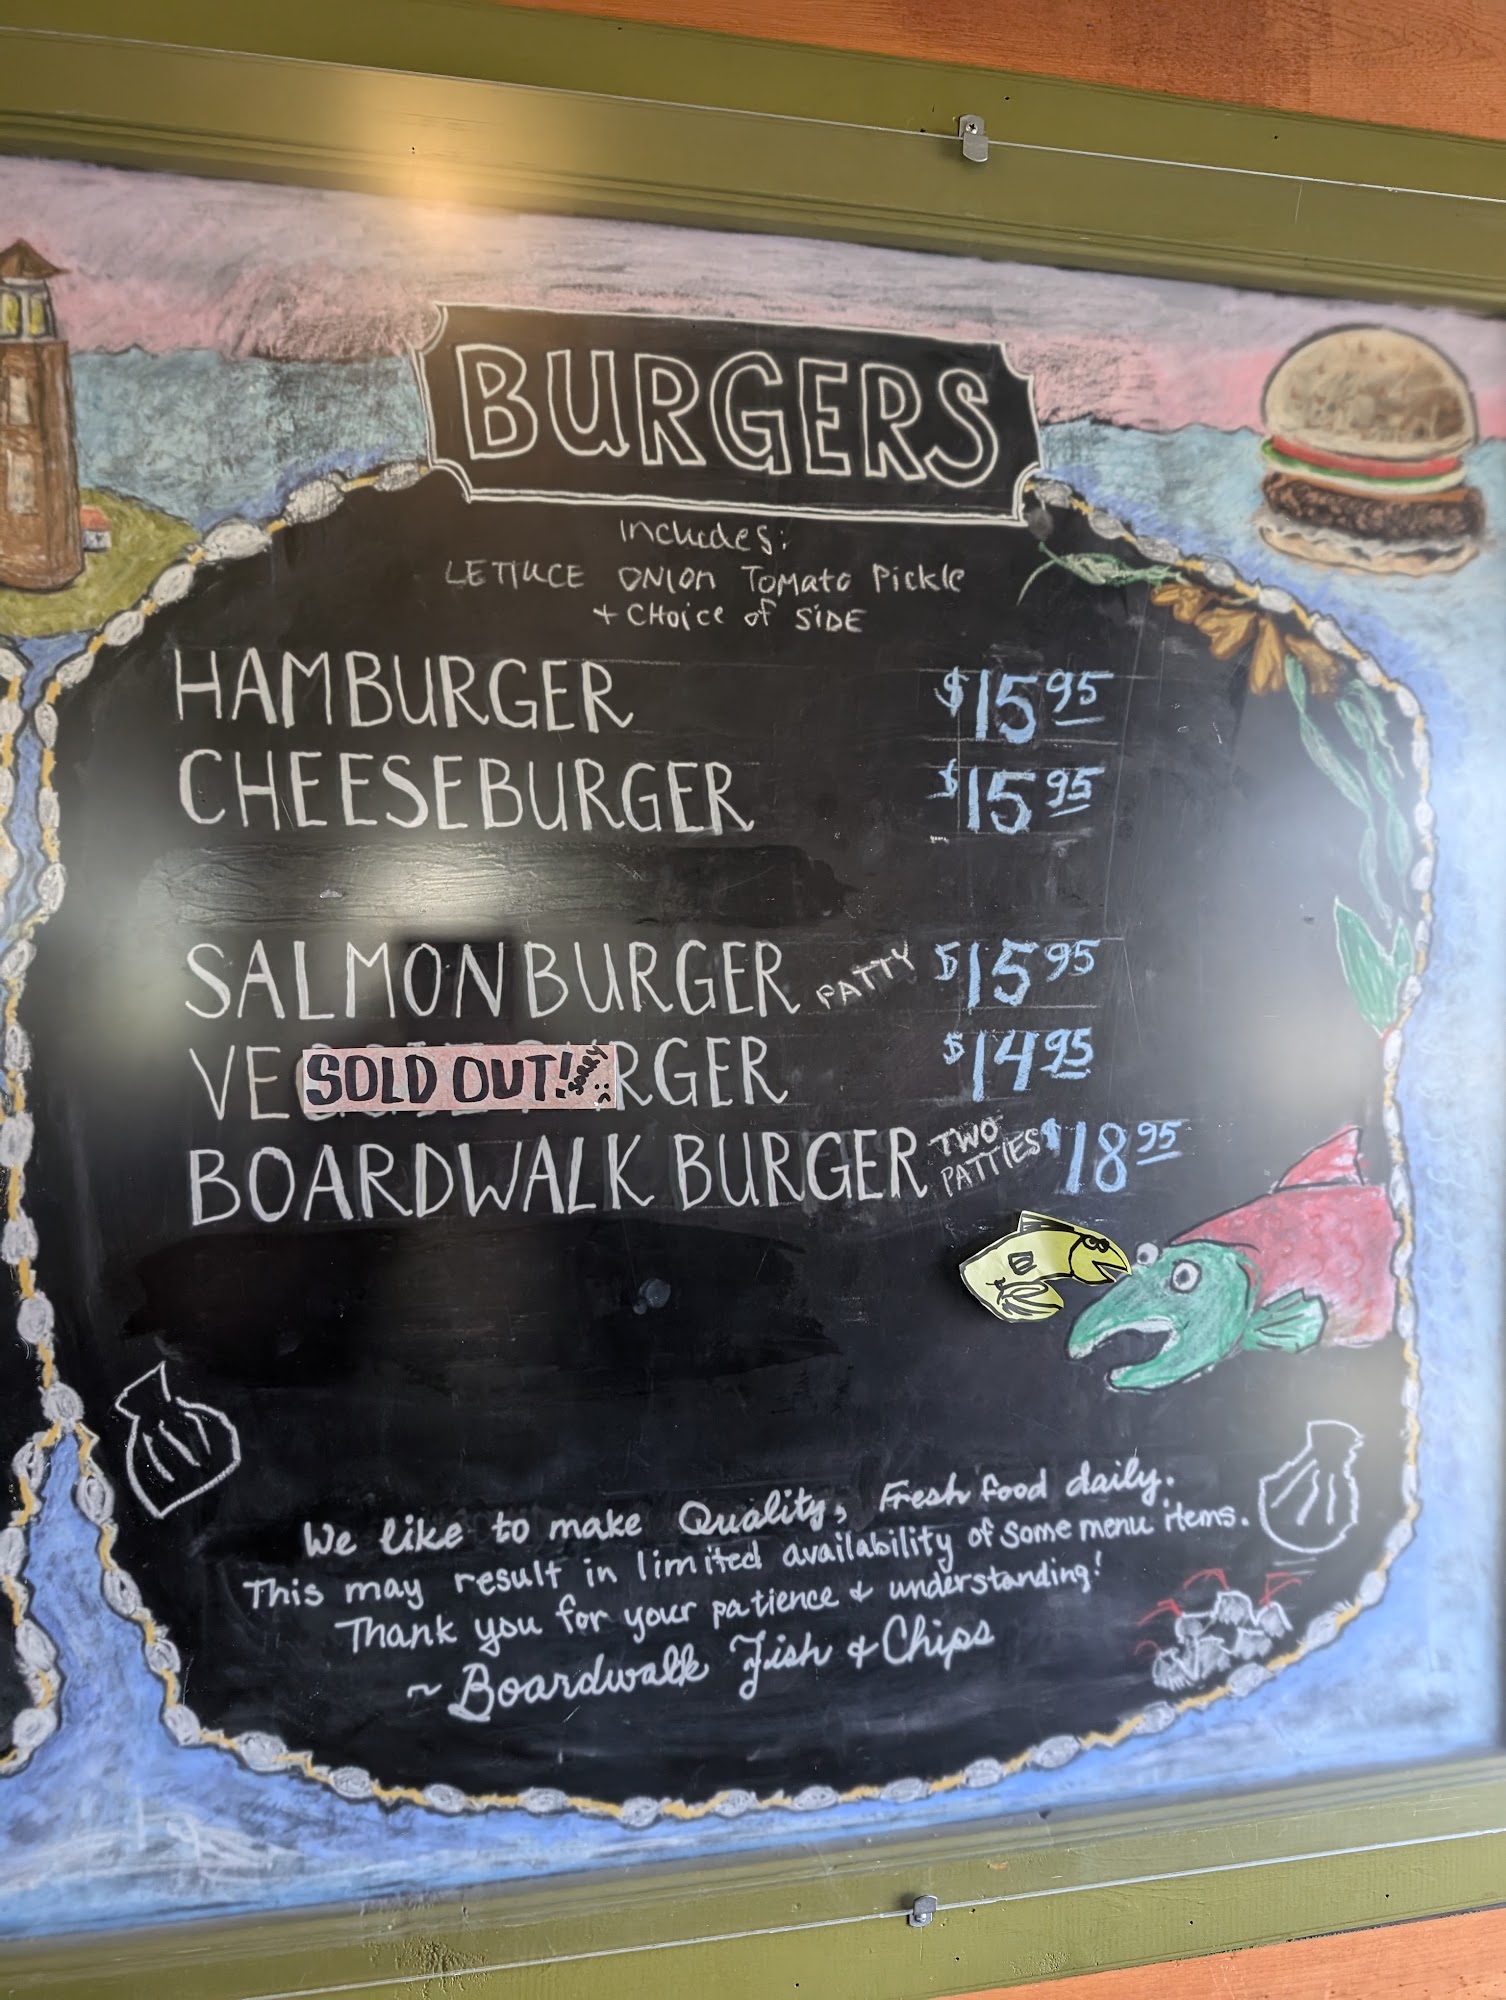 BURGERS
includes:
LETTUCE ONION TOMATO PICKLE
+ CHOICE of SIDE
HAMBURGER $15.95
CHEESEBURGER $15.95
SALMON BURGER PATTY $15.95
VE SOLD OUT! SORRY :( RGER $14.95
BOARDWALK BURGER TWO PATTIES $18.95
We like to make Quality, Fresh food daily.
This may result in limited availability of some menu items.
Thank you for your patience & understanding!
~ Boardwalk Fish & Chips